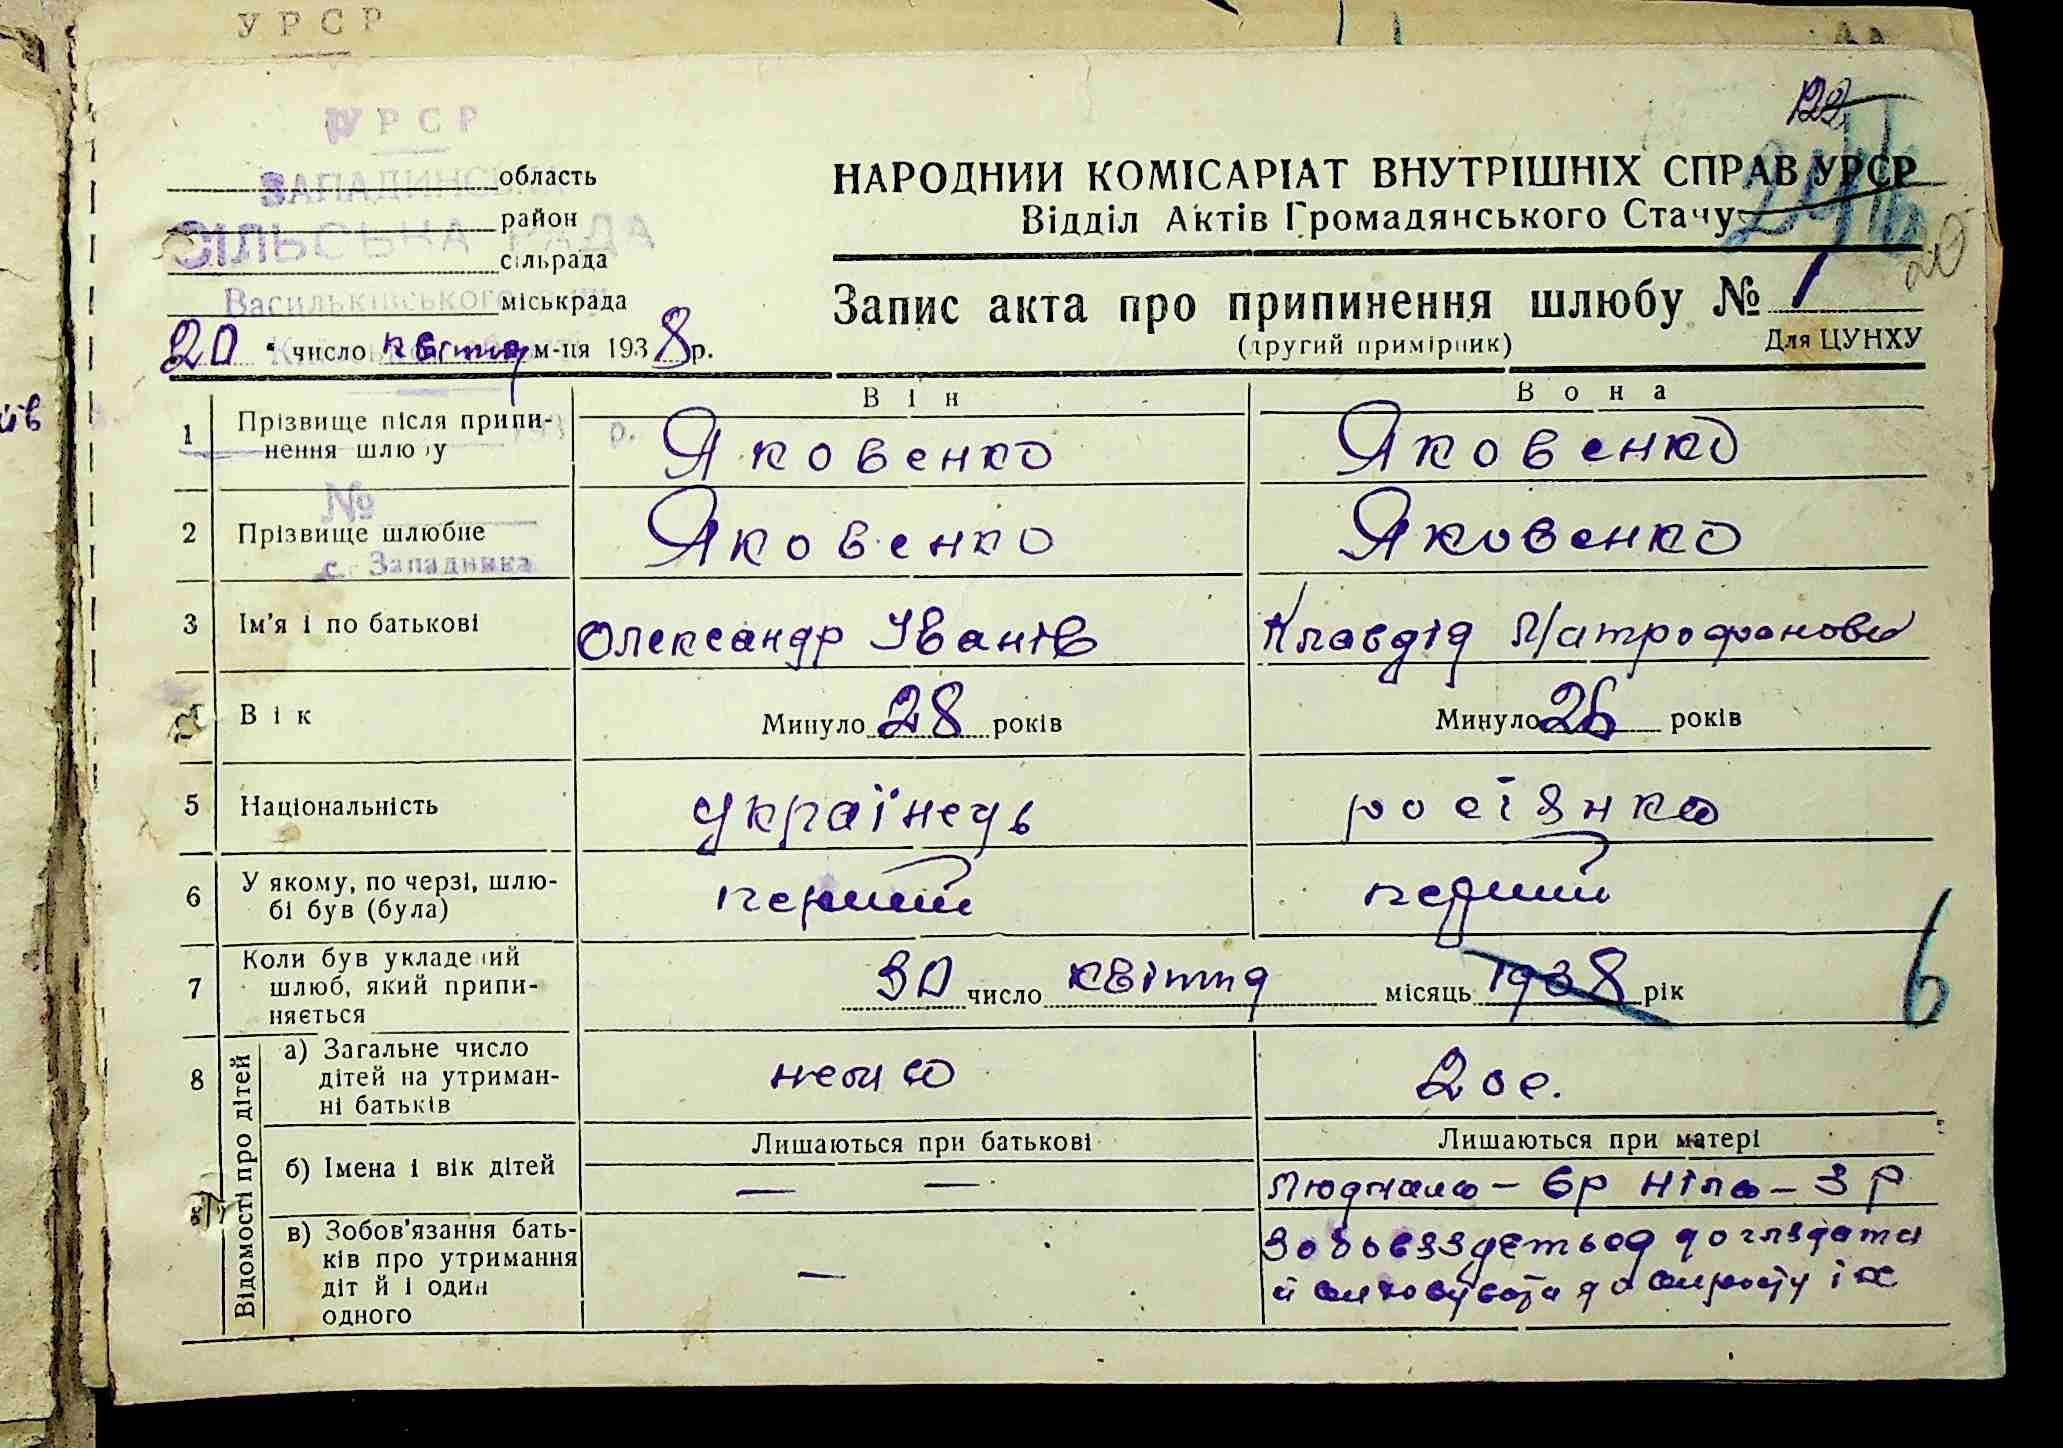 УРСР
УРСР
ЗАПАДИНСЬКА
СІЛЬСЬКА РАДА
Васильківського
область
район
сільрада
міськрада
20 число квітня м-ця 1938 р.
122
НАРОДНИЙ КОМІСАРІАТ ВНУТРІШНІХ СПРАВ УРСР
Відділ Актів Громадянського Стану
20
Запис акта про припинення шлюбу № 1
(другий примірник)
Для ЦУНХУ
Він
Вона
1 Прізвище після припинення шлюбу
р.
Яковенко
Яковенко
№
2 Прізвище шлюбне
с. Западинка
Яковенко
Яковенко
3 Ім'я і по батькові
Олександр Іванів
Клавдія Матрофанова
4 Вік
Минуло 28 років
Минуло 26 років
5 Національність
українець
росіянка
6 У якому, по черзі, шлю-
бі був (була)
перший
перший
7 Коли був укладений
шлюб, який припи-
няється
30 число квітня місяць 1938 рік
6
8 Відомості про дітей
а) Загальне число
дітей на утриман-
ні батьків
немає
2ое.
б) Імена і вік дітей
Лишаються при батькові
Лишаються при матері
— —
Людмила – 6р Ніла – 3 р
в) Зобов'язання бать-
ків про утримання
дітей і один
одного
—
Зобовязуеться доглядати
й виховувати до зросту їх